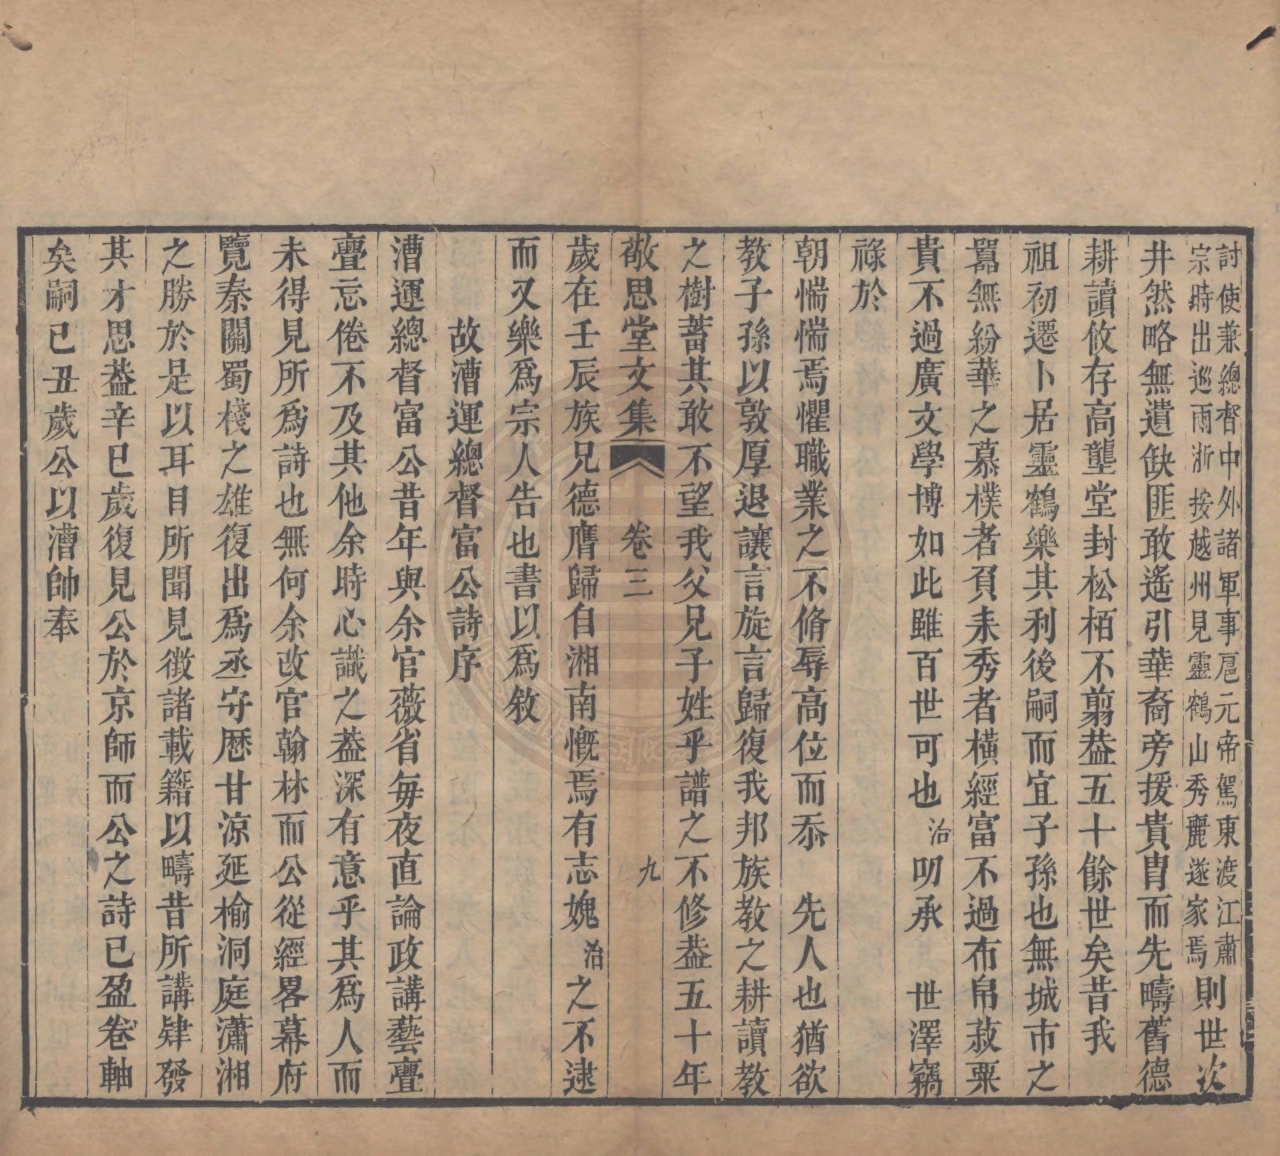 討使兼總督中外諸軍事扈元帝駕東渡江肅
宗時出巡兩浙按越州見靈鶴山秀麗遂家焉則世次
井然略無遺缺匪敢遙引華裔旁援貴冑而先疇舊德
耕讀攸存高壟堂封松栢不剪葢五十餘世矣昔我
祖初遷卜居靈鶴樂其利後嗣而宜子孫也無城市之
囂無紛華之慕樸者負耒秀者橫經富不過布帛菽粟
貴不過廣文學博如此雖百世可也治叨承　世澤竊
祿於
朝惴惴焉懼職業之不脩辱高位而忝　先人也猶欲
教子孫以敦厚退讓言旋言歸復我邦族教之耕讀教
之樹蓄其敢不望我父兄子姓乎譜之不修葢五十年
敬思堂文集　卷三　九
歲在壬辰族兄德膺歸自湘南慨焉有志媿治之不逮
而又樂爲宗人告也書以爲敘
故漕運總督富公詩序
漕運總督富公昔年與余官薇省每夜直論政講藝亹
亹忘倦不及其他余時心識之葢深有意乎其爲人而
未得見所爲詩也無何余改官翰林而公從經畧幕府
覽秦關蜀棧之雄復出爲丞守歷甘涼延榆洞庭瀟湘
之勝於是以耳目所聞見徵諸載籍以疇昔所講肄發
其才思葢辛巳歲復見公於京師而公之詩已盈卷軸
矣嗣己丑歲公以漕帥奉